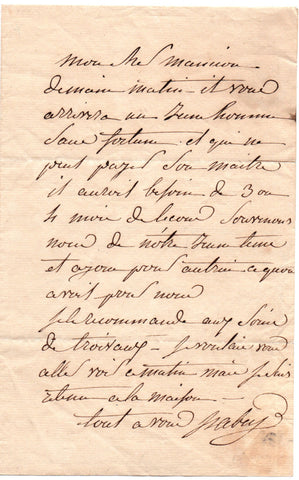 mon cher mansion
demain matin il vous
arrivera un jeune homme
sans fortune et qui ne
peut payer son maitre
il auroit besoin de 3 ou
4 mois de lecons souvenons
nous de nôtre jeunesse
et ayons pour autrui ce qu'on
avoit pour nous
je le recommande aux soins
de - je voulais vous
aller voir ce matin mais je suis
retenu a la maison -
tout a vous isabey